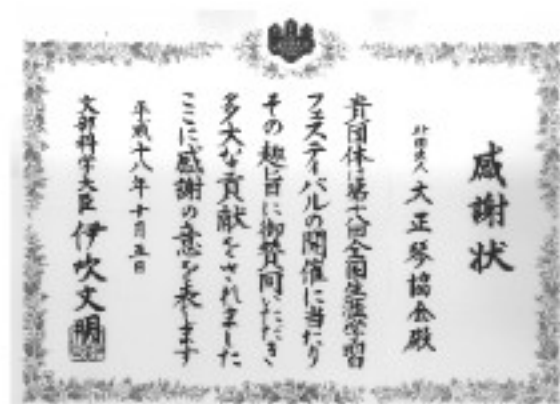 感謝状
社団法人 大正琴協会殿
貴団体は第十八回全国生涯学習
フェスティバルの開催に当たり
その趣旨に御賛同いただき
多大な貢献をされました
ここに感謝の意を表します
平成十八年十月五日
文部科学大臣 伊吹文明